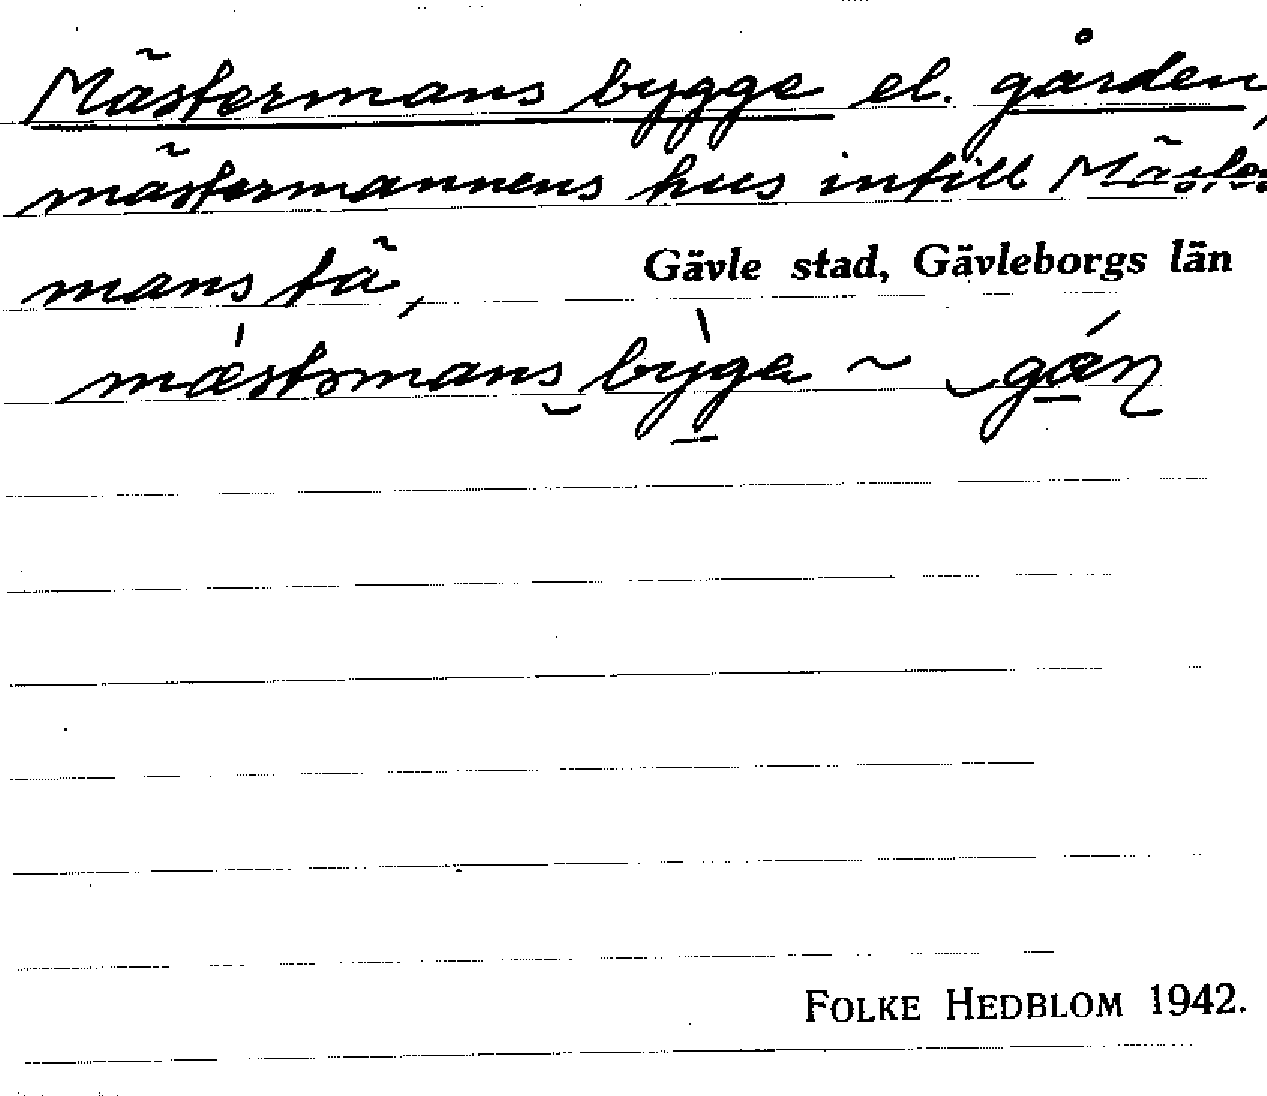 Mästermans bygge el. gården,
mästermannens hus intill Mäster
mans tä,
Gävle stad, Gävleborgs län
mæstərmans byga ~
FOLKE HEDBLOM 1942.